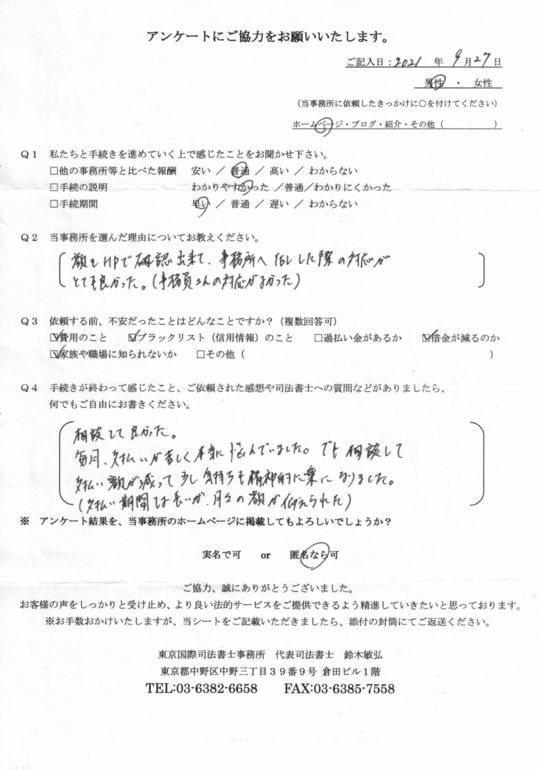 アンケートにご協力をお願いいたします。
ご記入日：2021 年 9月27日
男性 ・ 女性
（当事務所に依頼したきっかけに○を付けてください）
ホームページ・ブログ・紹介・その他（　　　　　）
Ｑ１ 私たちと手続きを進めていく上で感じたことをお聞かせ下さい。
□他の事務所等と比べた報酬 安い ／ 普通 ／ 高い ／ わからない
□手続の説明 わかりやすかった ／普通／わかりにくかった
□手続期間 早い ／ 普通 ／ 遅い ／ わからない
Ｑ２ 当事務所を選んだ理由についてお教えください。
額もHPで確認出来て、事務所へTELした際の対応が
とても良かった。(事務員さんの対応がよかった)
Ｑ３ 依頼する前、不安だったことはどんなことですか？（複数回答可）
☑費用のこと ☑ブラックリスト（信用情報）のこと □過払い金があるか ☑借金が減るのか
☑家族や職場に知られないか □その他（　　　　　）
Ｑ４ 手続きが終わって感じたこと、ご依頼された感想や司法書士への質問などがありましたら、
何でもご自由にお書きください。
相談して良かった。
毎月、支払いが苦しく本当に悩んでいました。でも相談して
支払い額が減って少し気持ちも精神的に楽になりました。
(支払い期間は長いが、月々の額が抑えられた)
※ アンケート結果を、当事務所のホームページに掲載してもよろしいでしょうか？
実名で可 or 匿名なら可
ご協力、誠にありがとうございました。
お客様の声をしっかりと受け止め、より良い法的サービスをご提供できるよう精進していきたいと思っております。
※お手数おかけいたしますが、当シートをご記載いただきましたら、添付の封筒にてご返送ください。
東京国際司法書士事務所 代表司法書士 鈴木敏弘
東京都中野区中野三丁目３９番９号 倉田ビル１階
TEL:03-6382-6658 FAX:03-6385-7558